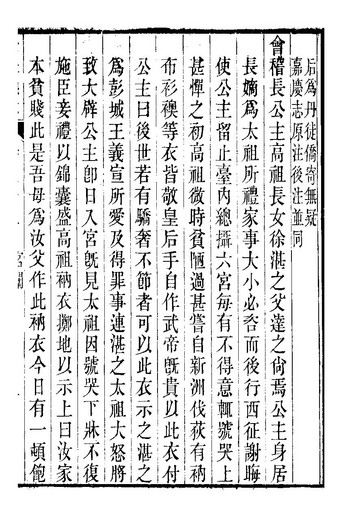 后爲丹徒僑寄無疑
嘉慶志原注後注並同
會稽長公主高祖長女徐湛之父逵之尚焉公主身居
長嫡爲太祖所禮家事大小必咨而後行西征謝晦
使公主留止臺內總攝六宮每有不得意輒號哭上
甚憚之初高祖微時貧陋過甚嘗自新洲伐荻有衲
布衫襖等衣皆敬皇后手自作武帝旣貴以此衣付
公主曰後世若有驕奢不節者可以此衣示之湛之
爲彭城王義宣所愛及得罪事連湛之太祖大怒將
致大辟公主卽日入宮旣見太祖因號哭下牀不復
施臣妾禮以錦囊盛高祖衲衣擲地以示上曰汝家
本貧賤此是吾母爲汝父作此衲衣今日有一頓飽